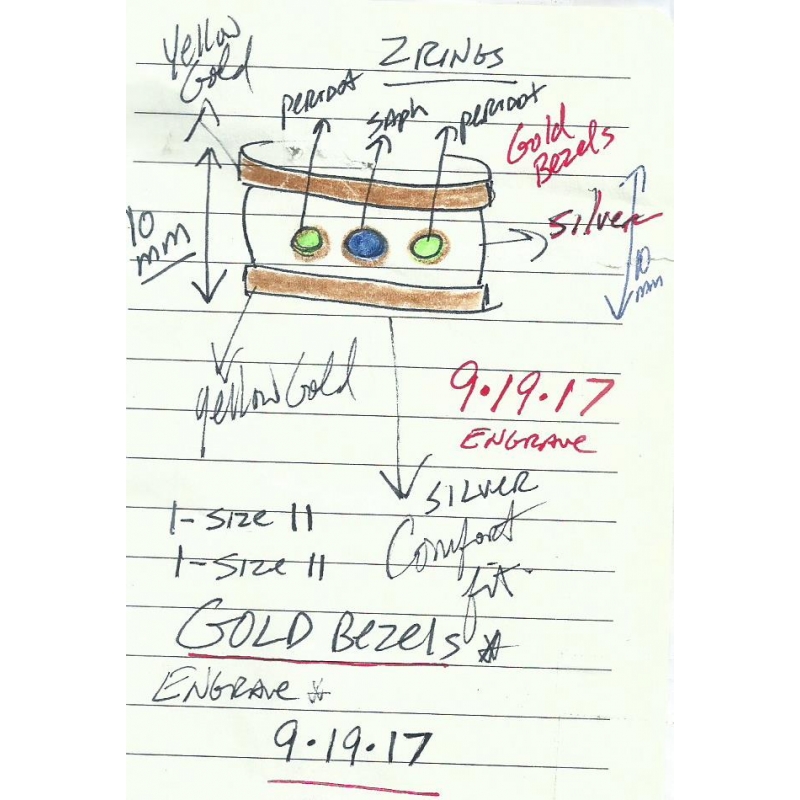 Yellow
Gold
2 RINGS
PERIDOT
SAPH
PERIDOT
Gold
Bezels
10
mm
Silver
10
mm
yellow Gold
9.19.17
ENGRAVE
SILVER
Comfort
fit.
1-Size 11
1-Size 11
GOLD Bezels
ENGRAVE
9.19.17